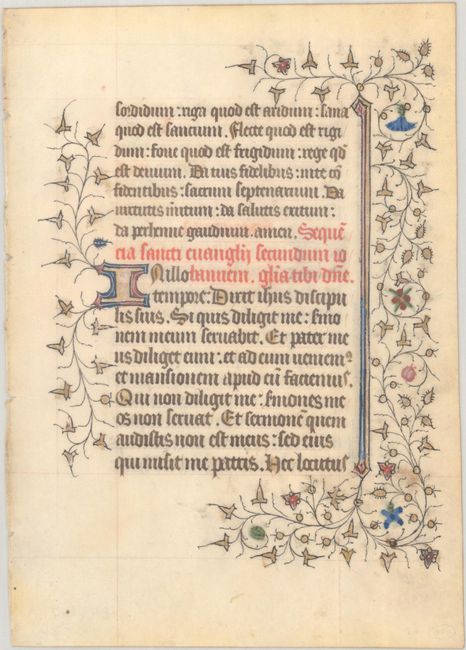 sordidum : riga quod est aridum : sana
quod est saucium. Flecte quod est rigi
dum : foue quod est frigidum : rege qd̄
est deuium. Da tuis fidelibus : in te cō
fidentibus : sacrum septenarium. Da
uirtutis m̄itum : da salutis exitum :
da perhenne gaudium. amen. Sequē
cia sancti euanglij secundum io
In illo hannem. gl̄ia tibi dn̄e.
tempore : Dixit ih̄us discipu
lis suis. Si quis diligit me : s̄mo
nem meum seruabit. Et pater me
us diliget eum : et ad eum ueniem⁹
et mansionem apud eū faciemus.
Qui non diligit me : s̄mones me
os non seruat. Et sermonē quem
audistis non est meus : sed eius
qui misit me patris. Hec locutus